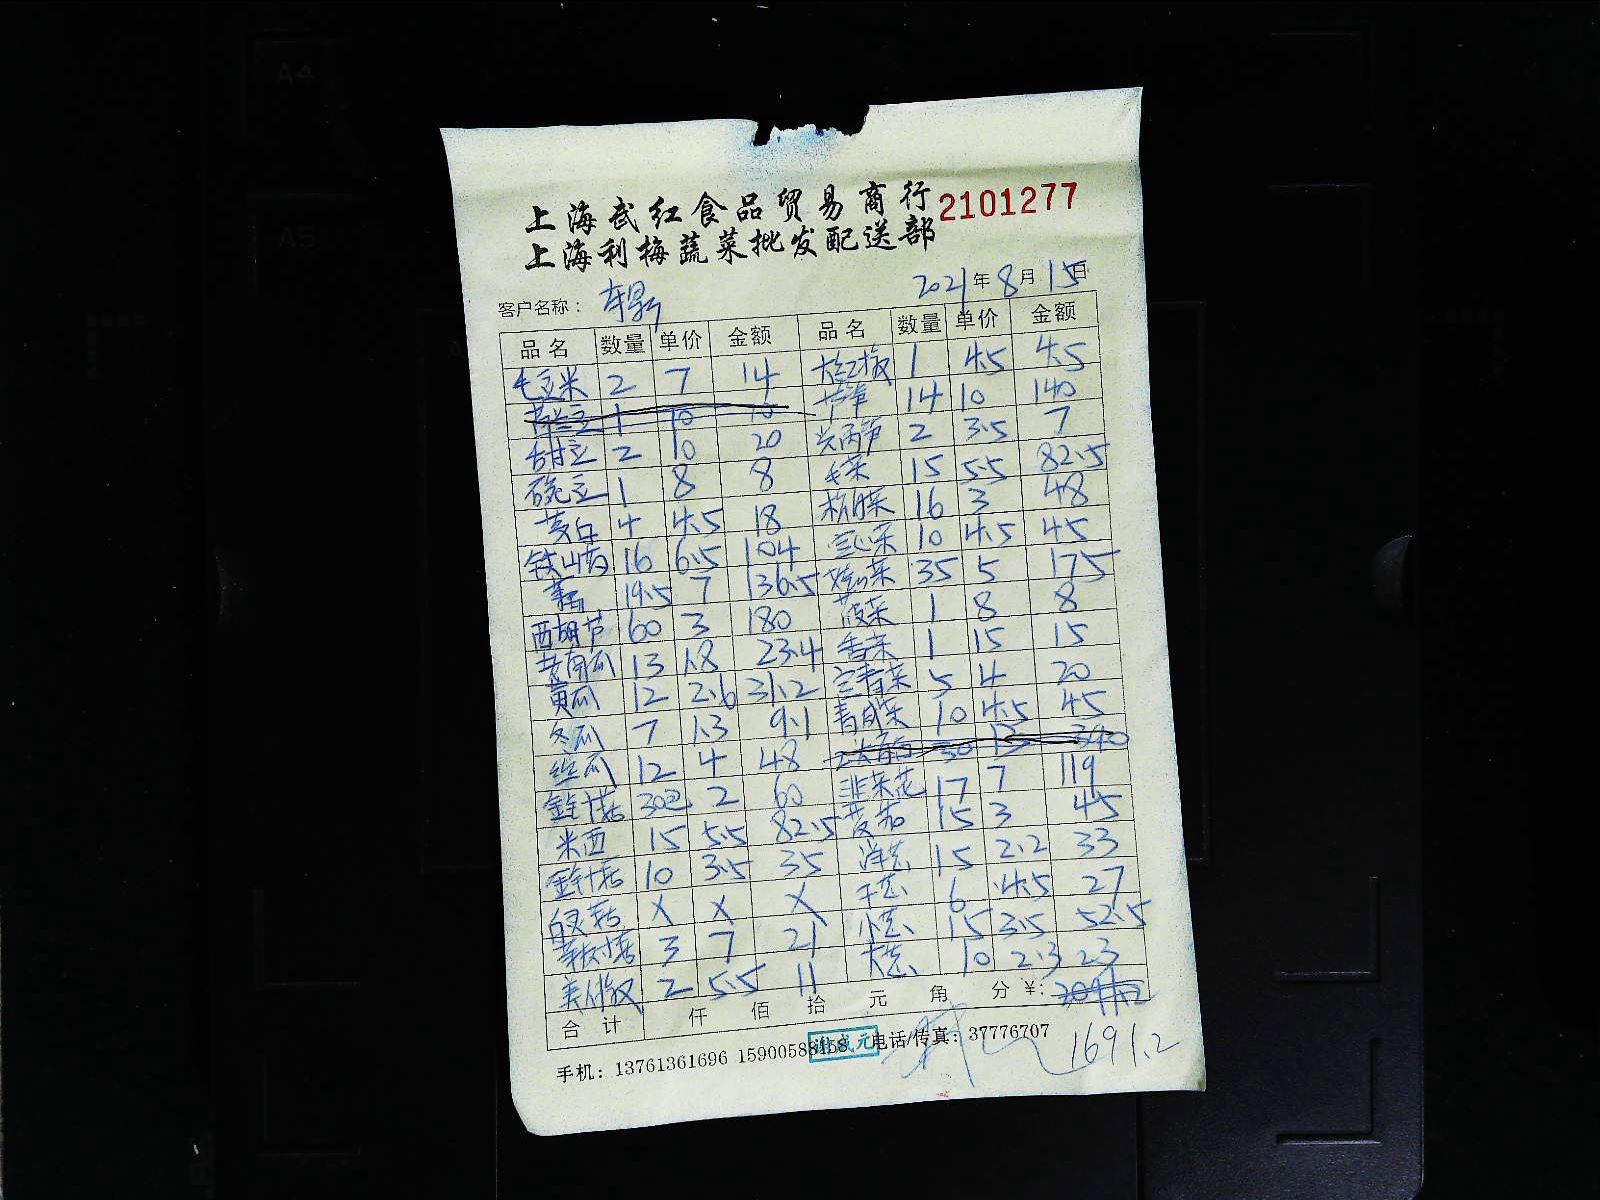 上海武红食品贸易商行 2101277
上海利梅蔬菜批发配送部
客户名称： 2021年8月15日
品名 数量 单价 金额 品名 数量 单价 金额
毛豆米 2 7 14 大红椒 1 4.5 4.5
荷兰豆 1 10 10 14 10 140
甜豆 2 10 20 2 3.5 7
豌豆 1 8 8 毛菜 15 5.5 82.5
茭白 4 4.5 18 杭白菜 16 3 48
铁山药 16 6.5 104 空心菜 10 4.5 45
莲藕 19.5 7 136.5 娃娃菜 35 5 175
西胡芦 60 3 180 菠菜 1 8 8
老南瓜 13 1.8 23.4 香菜 1 15 15
黄瓜 12 2.6 31.2 青菜 5 4 20
冬瓜 7 1.3 9.1 10 4.5 45
丝瓜 12 4 48 30 13 340
金针菇 30包 2 60 韭菜花 17 7 119
米西 15 5.5 82.5 茄 15 3 45
金针菇 10 3.5 35 洋葱 15 2.2 33
白灵菇 X X X 干葱 6 4.5 27
3 7 21 小葱 15 3.5 52.5
美人椒 2 5.5 11 大葱 10 2.3 23
合计 仟 佰 拾 元 角 分 ¥:
手机：13761361696 15900588458 电话/传真：37776707 1691.2